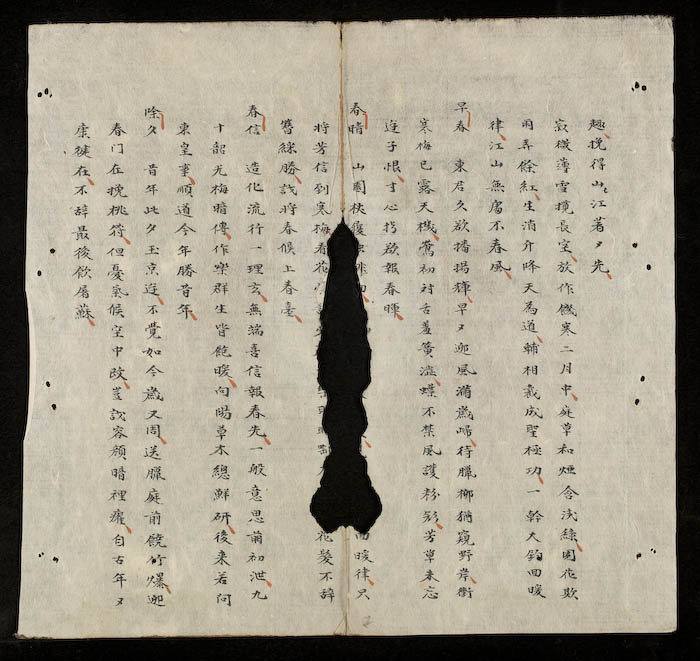 趣挽得山江著夕先
寂機薄雪攬長空放作饑寒二月中庭草和烟含浅綠園花欺
雨弄餘紅生消介降天為道輔相裁成聖極功一幹大鈞回暖
律江山無處不春風
早春 東君久欲播揚輝早々迎風滿歲歸待臘柳猶窺野岸衝
寒梅已露天機鶯初対舌羞簧澁蝶不禁風護粉芳草未忘
遊子恨寸心擬欲報春暉
春晴 山園 回暖律只
將芳信到寒梅看花 花髮不辞
簪綵勝試將春候上春臺
春信 造化流行一理玄無端喜信報春先一般意思萠初泄九
十韶光梅暗傳作楽群生皆飽暖向陽草木總鮮研後来若問
東皇事順道今年勝昔年
除夕 昔年此夕玉京遊不覺如今歲又周送臘庭前饒竹爆迎
春门在挽桃符但憂氣候空中改豈試容顏暗裡癯自古年々
康健在不辞最後飲屠蘇